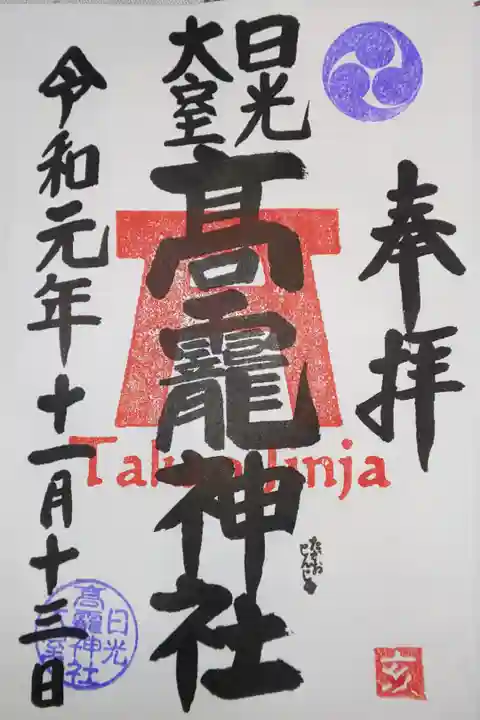 奉拝
日光
大室
高龗神社
たかお
じんじゃ
令和元年十一月十三日
Takao Jinja
日光
高龗神社
大室